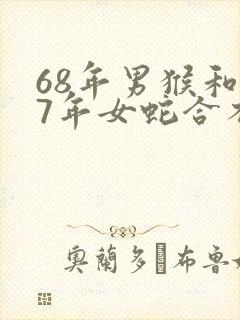 68年男猴和
7年女蛇合
奧蘭多 布魯